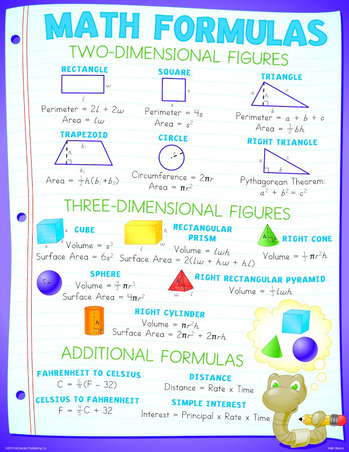 MATH FORMULAS
TWO-DIMENSIONAL FIGURES
RECTANGLE
Perimeter = 2l + 2w
Area = lw
SQUARE
Perimeter = 4s
Area = s²
TRIANGLE
Perimeter = a + b + c
Area = ½bh
TRAPEZOID
Area = ½h(b₁+b₂)
CIRCLE
Circumference = 2πr
Area = πr²
RIGHT TRIANGLE
Pythagorean Theorem:
a² + b² = c²
THREE-DIMENSIONAL FIGURES
CUBE
Volume = s³
Surface Area = 6s²
RECTANGULAR
PRISM
Volume = lwh
Surface Area = 2(lw + hw + hl)
RIGHT CONE
Volume = ⅓πr²h
SPHERE
Volume = 4/3 πr³
Surface Area = 4πr²
RIGHT RECTANGULAR PYRAMID
Volume = ⅓lwh
RIGHT CYLINDER
Volume = πr²h
Surface Area = 2πr² + 2πrh
ADDITIONAL FORMULAS
FAHRENHEIT TO CELSIUS
C = 5/9(F - 32)
DISTANCE
Distance = Rate x Time
CELSIUS TO FAHRENHEIT
F = 9/5C + 32
SIMPLE INTEREST
Interest = Principal x Rate x Time